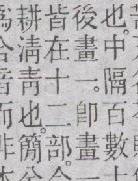 也。中隔百數
後畫。一即畫
皆在十二部。
耕清青也。簡
合音而非